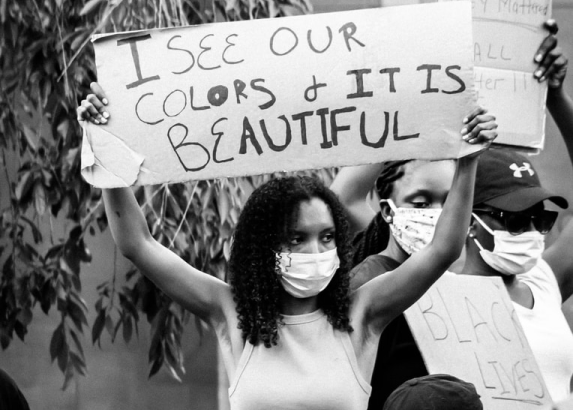 I SEE OUR
COLORS & IT IS
BEAUTIFUL
Y Matter
ALL
BLAC
LIVES